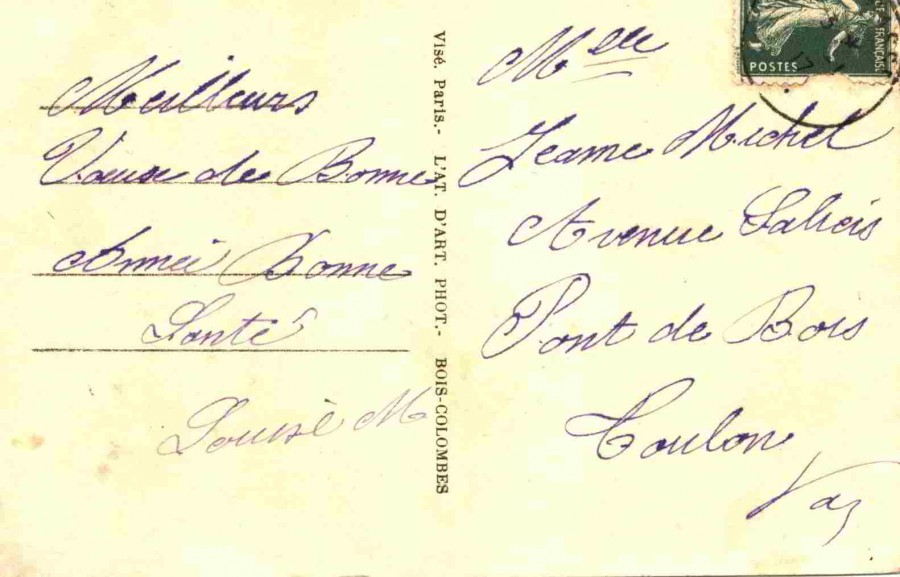 Meilleurs
Vœux de Bonne
Année Bonne
Santé
Louise M
Visé. Paris.- L'AT. D'ART. PHOT.- BOIS-COLOMBES
Mlle
Jeanne Michel
Avenue
Pont de Bois
Toulon
Var
POSTES
FRANÇAISE